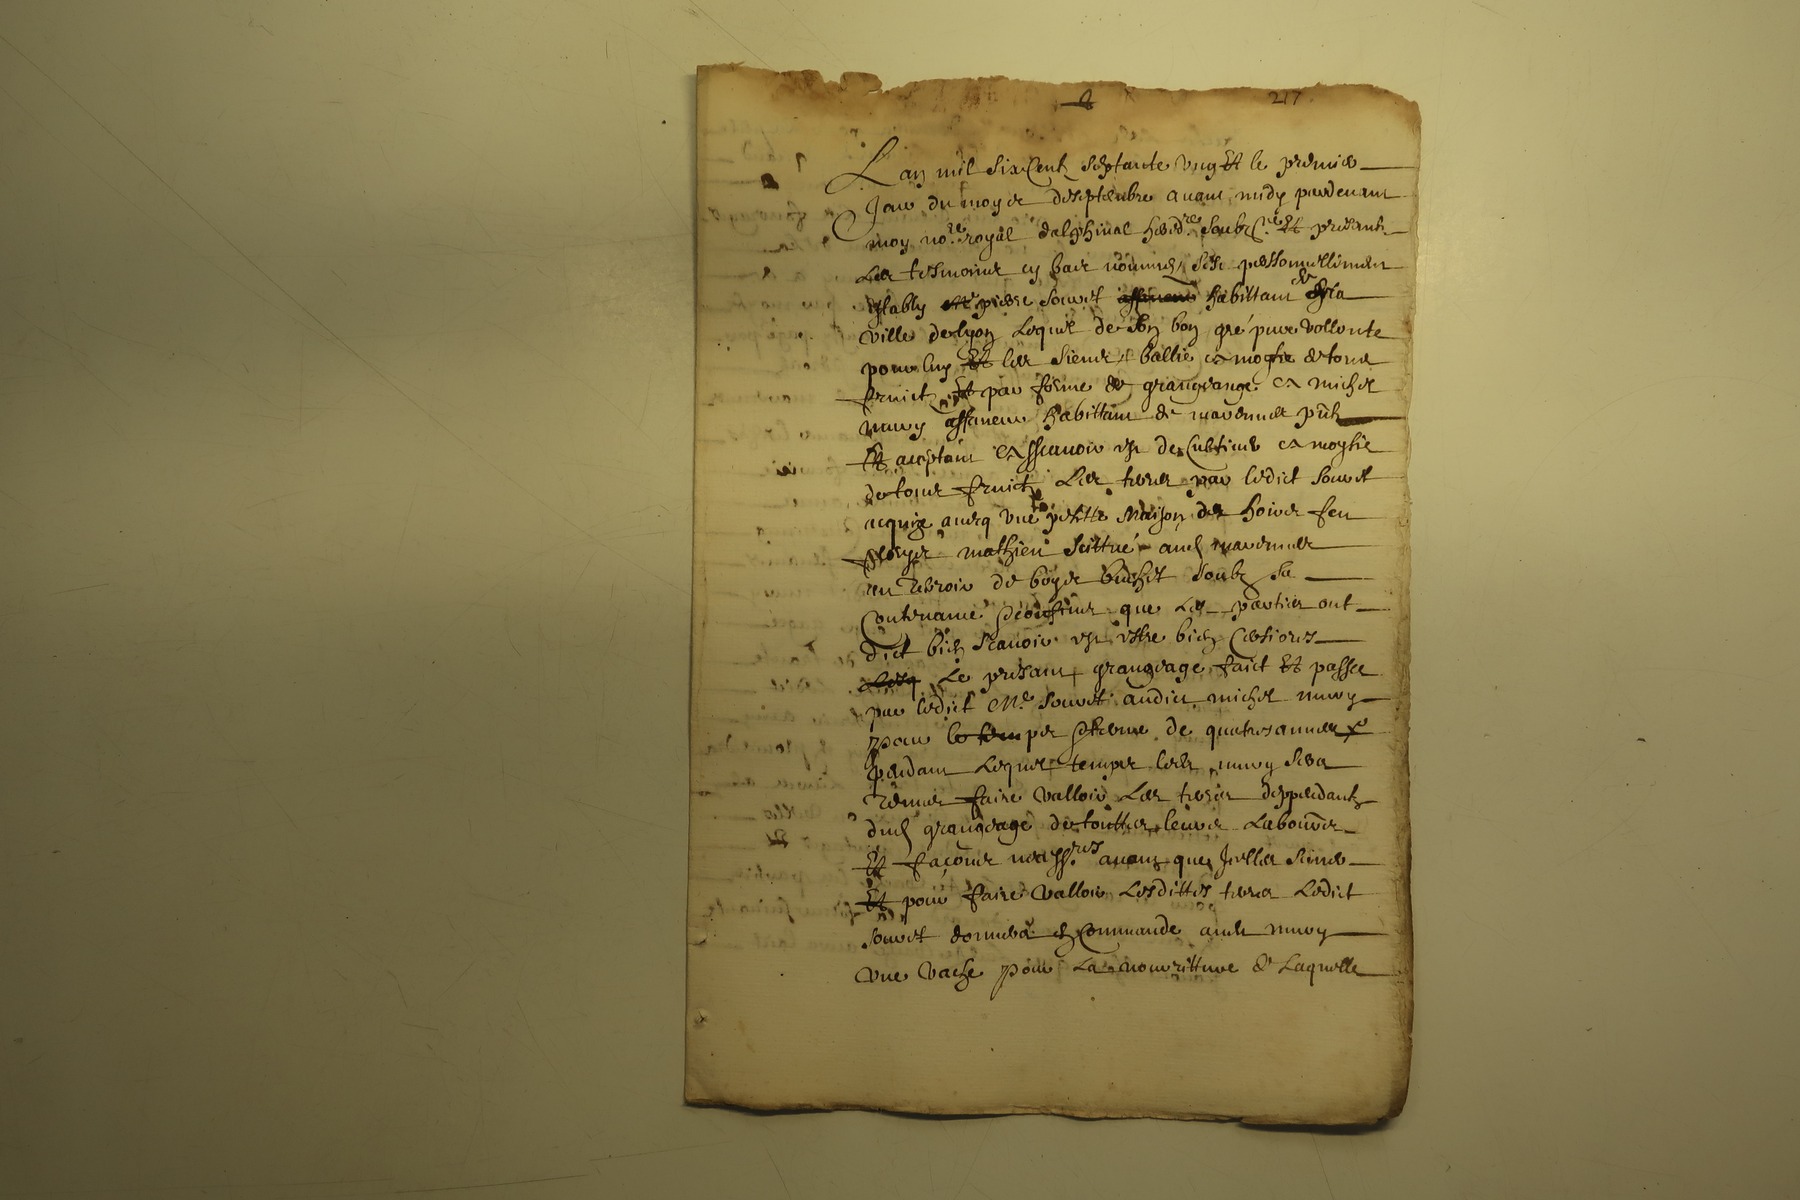 217
Lan mil six Centz septante ung Et le premier
Jour du moys de septembre avant midy pardevant
moy no.re royal dalphinal hered.re soubz.né Et presants
Les tesmoins cy bas nommés s'est personnellement
establi pierre Jouvet habittant de la
ville de Lyon Lequel de son bon gré pure vollonte
pour luy Et les siens baillé a moytie de tous
fruictz Et par forme de grangeage a michel
muvy affaneur habittant de marennes p̃nt
Et acceptant a sscavoir est de Cultiver a moytie
de tous fruictz Les terres par ledict Jouvet
acquize avecq une petitte Maison des hoirs feu
mathieu aud marennes
au Terroir de soubz sa
Contenance Confins que Les parties ont
dict bien scavoir et estre bien Certiores
Le presant grangeage faict Et passé
par ledict M.e Jouvet audict michel muvy
pour per terme de quatres années
pendant Lequel temps led muvy sera
Tenus faire valloir Les terres deppendants
dud grangeage de touttes leuvres Labourer
Et façons necess.res avant que Jcelles semer
Et pour faire valloir Lesdittes terres Ledict
Jouvet donnera en Commande aud muvy
une vache pour La nourritture de Laquelle